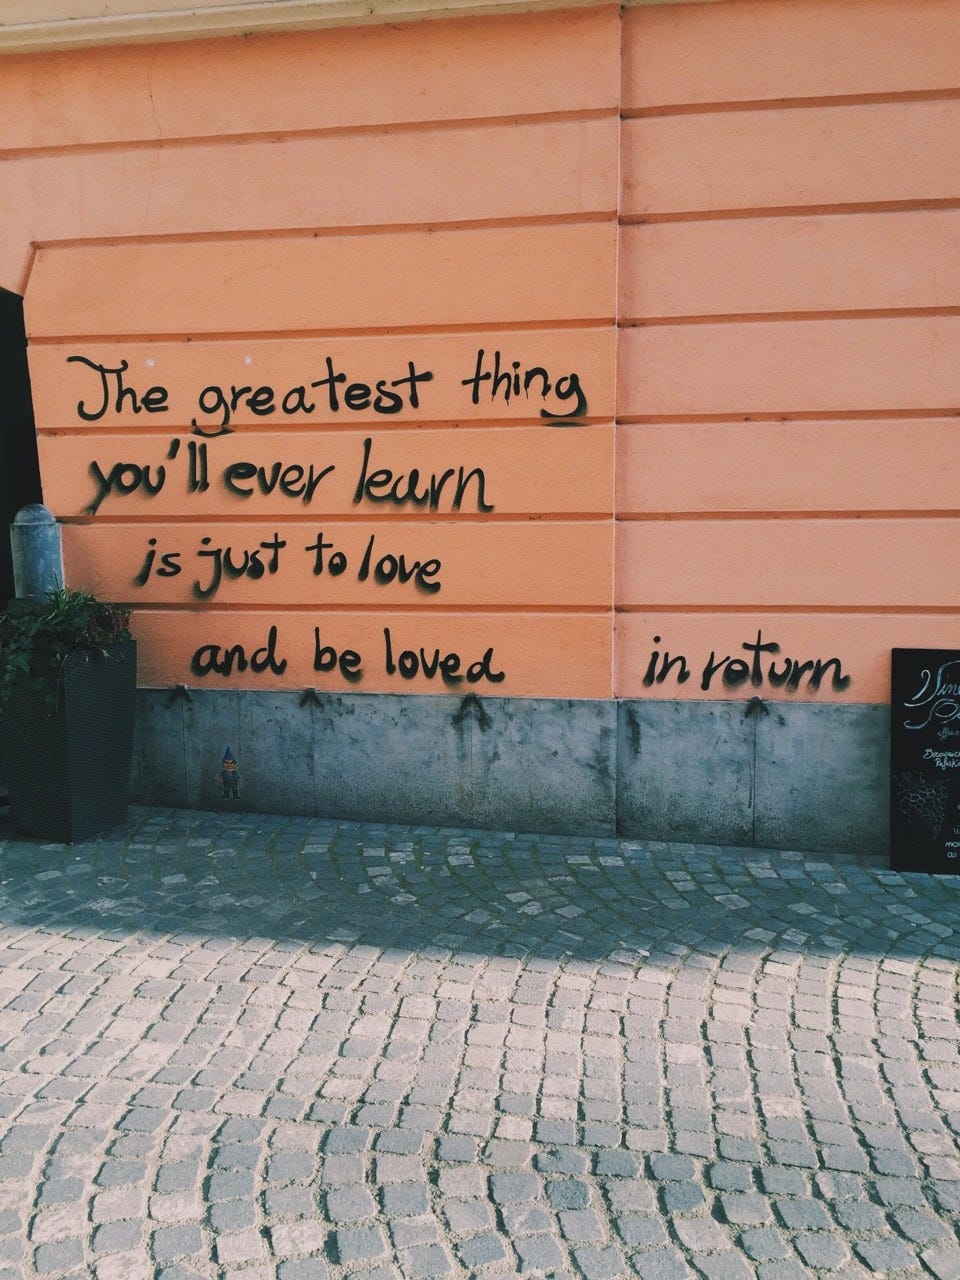 The greatest thing
you'll ever learn
is just to love
and be loved in return